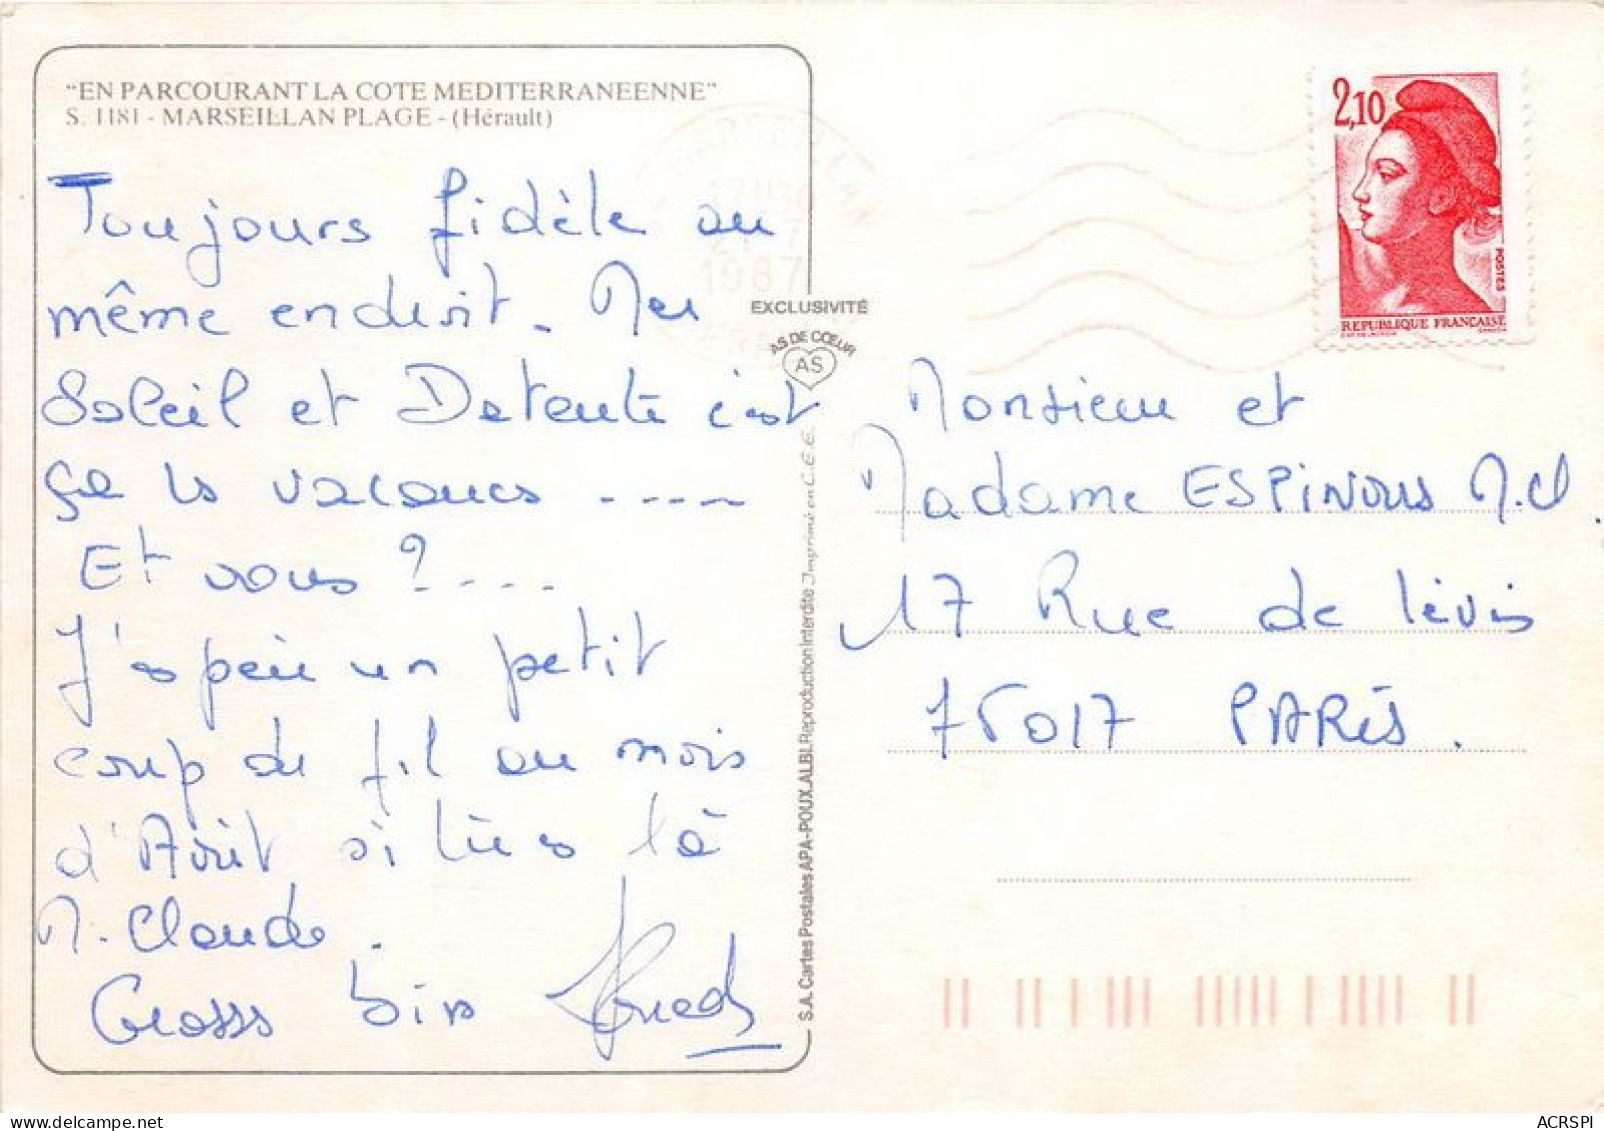 "EN PARCOURANT LA COTE MEDITERRANEENNE"
S. 1181 - MARSEILLAN PLAGE - (Hérault)
Toujours fidèle au
même endroit. Mer
Soleil et Detente c'est
ça les vacances ----
Et vous ? ----
J'espère un petit
coup de fil au mois
d'Août si tu es là
M. Claude.
Grosses bises
MARSEILLAN
17H30
1987
EXCLUSIVITÉ
AS DE CŒUR
AS
S.A. Cartes Postales APA-POUX.ALBI.Reproduction Interdite Imprimé en C.E.E.
2,10
POSTES
REPUBLIQUE FRANÇAISE
Monsieur et
Madame ESPINOUS M.Cl.
17 Rue de Lévis
75017 PARIS.
ACRSPI